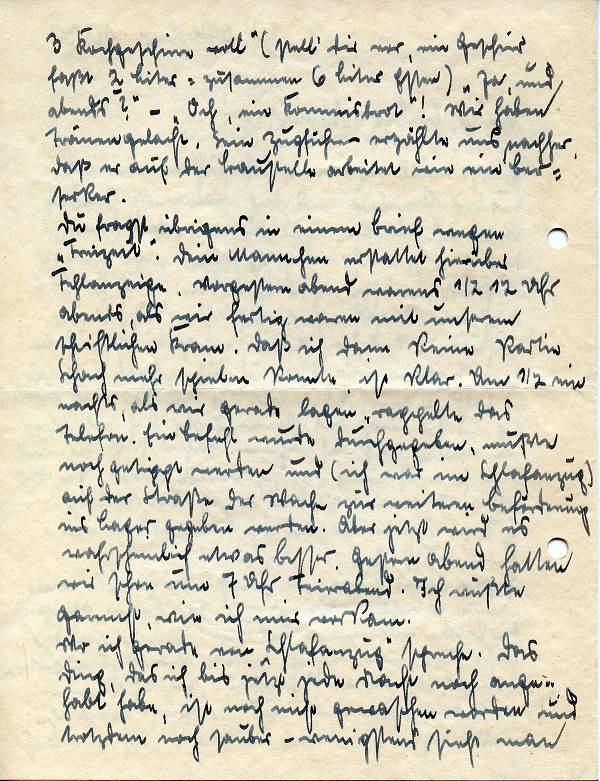 3 Kochgeschirre voll" (stell' dir vor, ein Geschirr
faßt 2 Liter = zusammen 6 Liter Essen) „Ja, und
abends?" – „Och, ein Kommisbrot"! Wir haben
Tränen gelacht. Sein Zugführer erzählte uns nachher,
daß er auf der Baustelle arbeitet wie ein Ber=
serker.
Du fragst übrigens in einem Brief wegen
„Freizeit". Dein Männchen erstattet hierüber
Fehlanzeige. Vorgestern abend warens 1/2 12 Uhr
abends, als wir fertig waren mit unserem
schriftlichen Kram. Daß ich dann keine Partie
Schach mehr schieben konnte, ist klar. Um 1/2 ein
nachts, als wir gerade lagen, rappelte das
Telefon. Ein Befehl wurde durchgegeben, mußte
noch getippt werden und (ich war im Schlafanzug)
auf der Straße der Wache zur weiteren Beförderung
ins Lager gegeben werden. Aber jetzt wird es
wahrscheinlich etwas besser. Gestern abend hatten
wir schon um 7 Uhr Feierabend. Ich wußte
garnicht, wie ich mir vorkam.
Wo ich gerade von „Schlafanzug" spreche. Das
Ding, das ich bis jetzt jede Nacht noch ange=
habt habe, ist noch nicht gewaschen worden und
trotzdem noch sauber – wenigstens sieht man